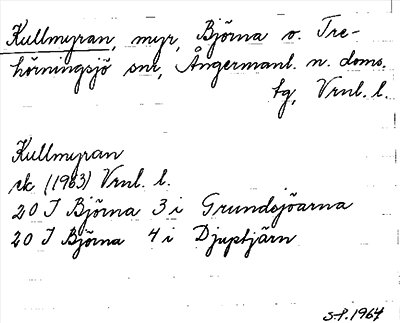 Kullmyran, myr, Björna o. Tre-
hörningsjö snr, Ångermanl. n. doms.
tg, Vrnl. l.
Kullmyran
ek (1963) Vrnl. l.
20 J Björna 3 i Grundsjöarna
20 J Björna 4 i Djuptjärn
S.P. 1964